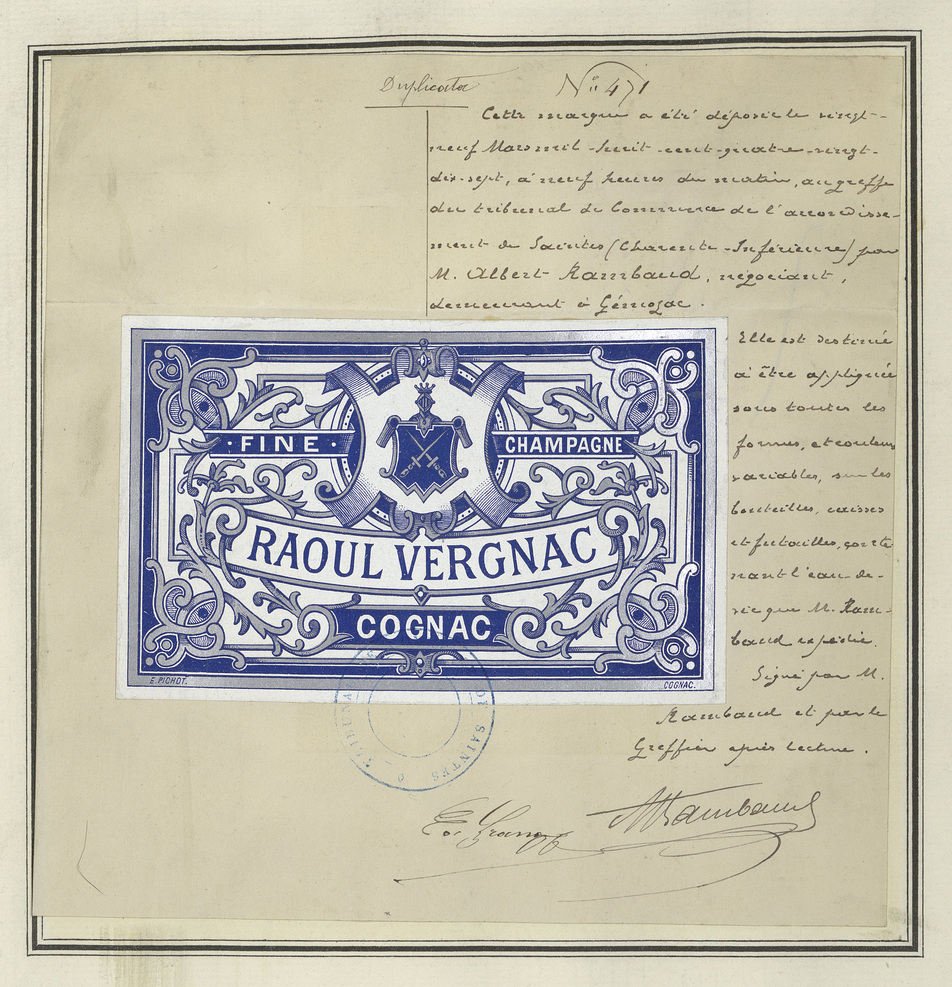 Duplicata
Nº 471
Cette marque a été déposée le vingt-
neuf Mars mil-huit-cent-quatre-vingt-
dix-sept, à neuf heures du matin, au greffe
du tribunal de Commerce de l'arrondisse-
ment de Saintes (Charente-Inférieure) par
M. Albert Rambaud, négociant,
demeurant à Gémozac.
Elle est destinée
à être appliquée
sous toutes les
formes, et couleurs
variables, sur les
bouteilles, caisses
et futailles, conte-
nant l'eau-de-
vie que M. Ram-
baud expédie.
Signé par M.
Rambaud et par le
Greffier après lecture.
FINE
CHAMPAGNE
RAOUL VERGNAC
COGNAC
E. PICHOT.
COGNAC.
TRIBUNAL DE SAINTES
Rambaud